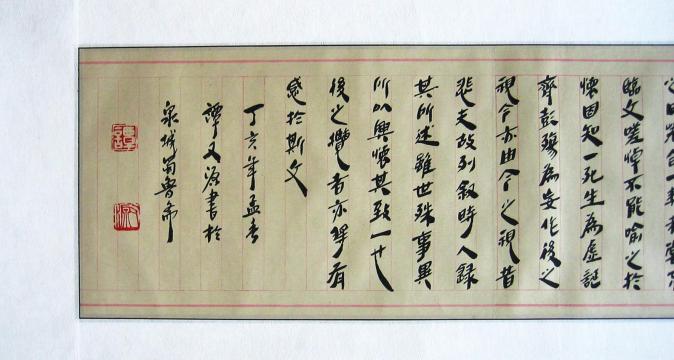 臨文嗟悼不能喻之於
懷固知一死生為虛誕
齊彭殤為妄作後之
視今亦由今之視昔
悲夫故列敘時人錄
其所述雖世殊事異
所以興懷其致一也
後之攬者亦將有
感於斯文
丁亥年孟春
譚又源書於
泉城